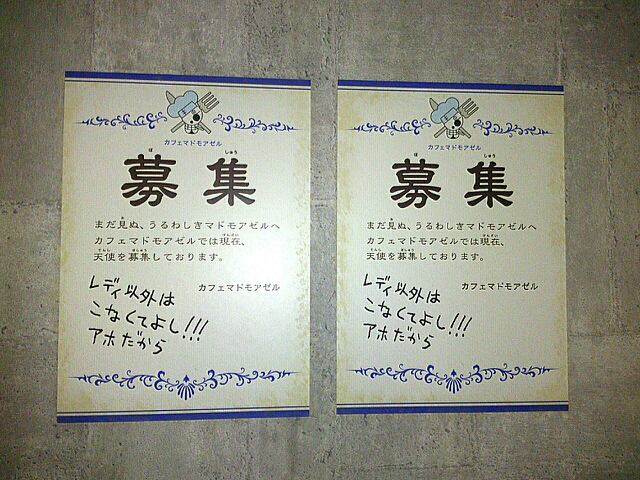 カフェマドモアゼル
募集
まだ見ぬ、うるわしきマドモアゼルへ
カフェマドモアゼルでは現在、
天使を募集しております。
カフェマドモアゼル
レディ以外は
こなくてよし!!!
アホだから
カフェマドモアゼル
募集
まだ見ぬ、うるわしきマドモアゼルへ
カフェマドモアゼルでは現在、
天使を募集しております。
カフェマドモアゼル
レディ以外は
こなくてよし!!!
アホだから